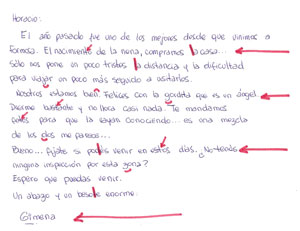 Horacio:
El año pasado fue uno de los mejores desde que vinimos a
Formosa. El nacimiento de la nena, compramos la casa...
Sólo nos pone un poco tristes la distancia y la dificultad
para viajar un poco más seguido a visitarlos.
Nosotros estamos bien. Felices con la gordita que es un ángel.
Duerme bastante y no llora casi nada. Te mandamos
para que la vayan conociendo... es una mezcla
de los dos me parece...
Bueno... Fijate si podés venir en estos días. ¿No tenés
ninguna inspección por esta zona?
Espero que puedas venir.
Un abrazo y un beso enorme.
Gimena